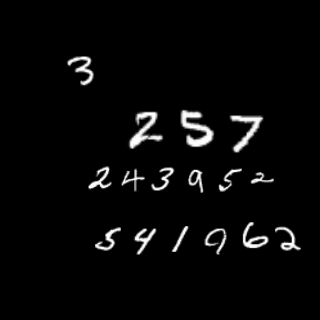 3
257
243952
541962